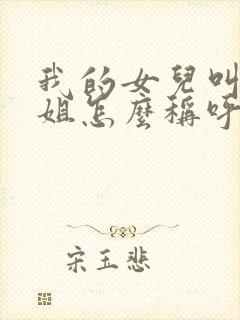 我的女兒叫
姐怎麼稱呼
宋玉悲